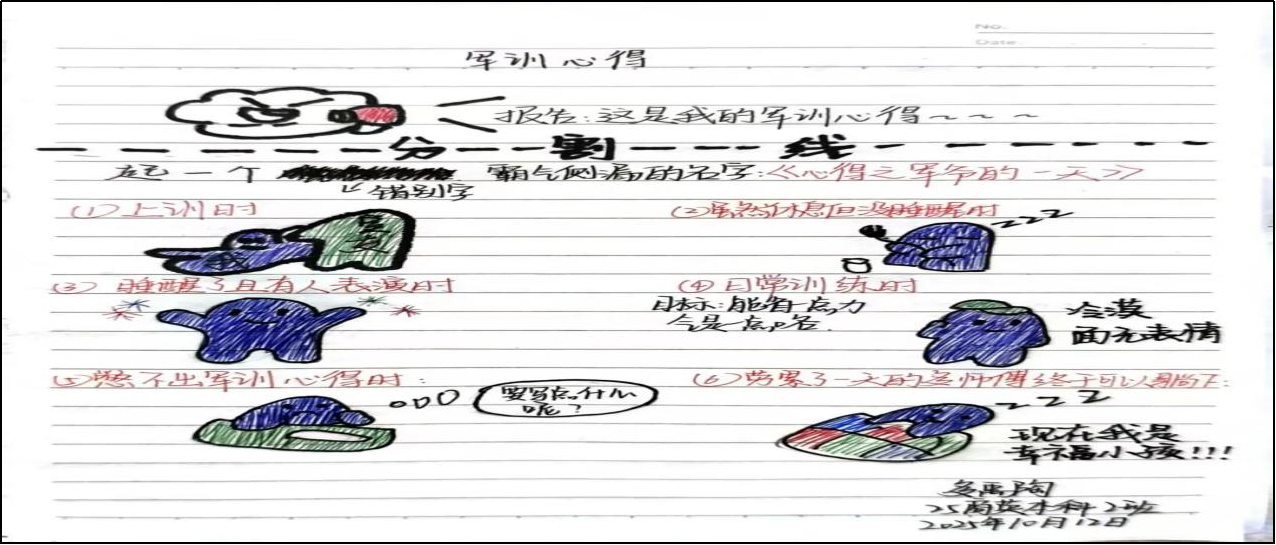 No.
Date.
军训心得
报告:这是我的军训心得~~~~
分割线
起一个 霸气侧漏的名字:《心得之军爷的一天》
错别字
(1)上训时
我
(2)虽然休息但没睡醒时
zzz
(3)睡醒了且有人表演时
(4)日常训练时
目标:能有一点力
令是一点哈.
冷漠
面无表情
(5)憋不出军训心得时:
要写点什么
呢?
(6)劳累了一天的老师傅终于可以躺下:
zzz
现在我是
幸福小孩!!!
25届英本科2班
2025年10月12日